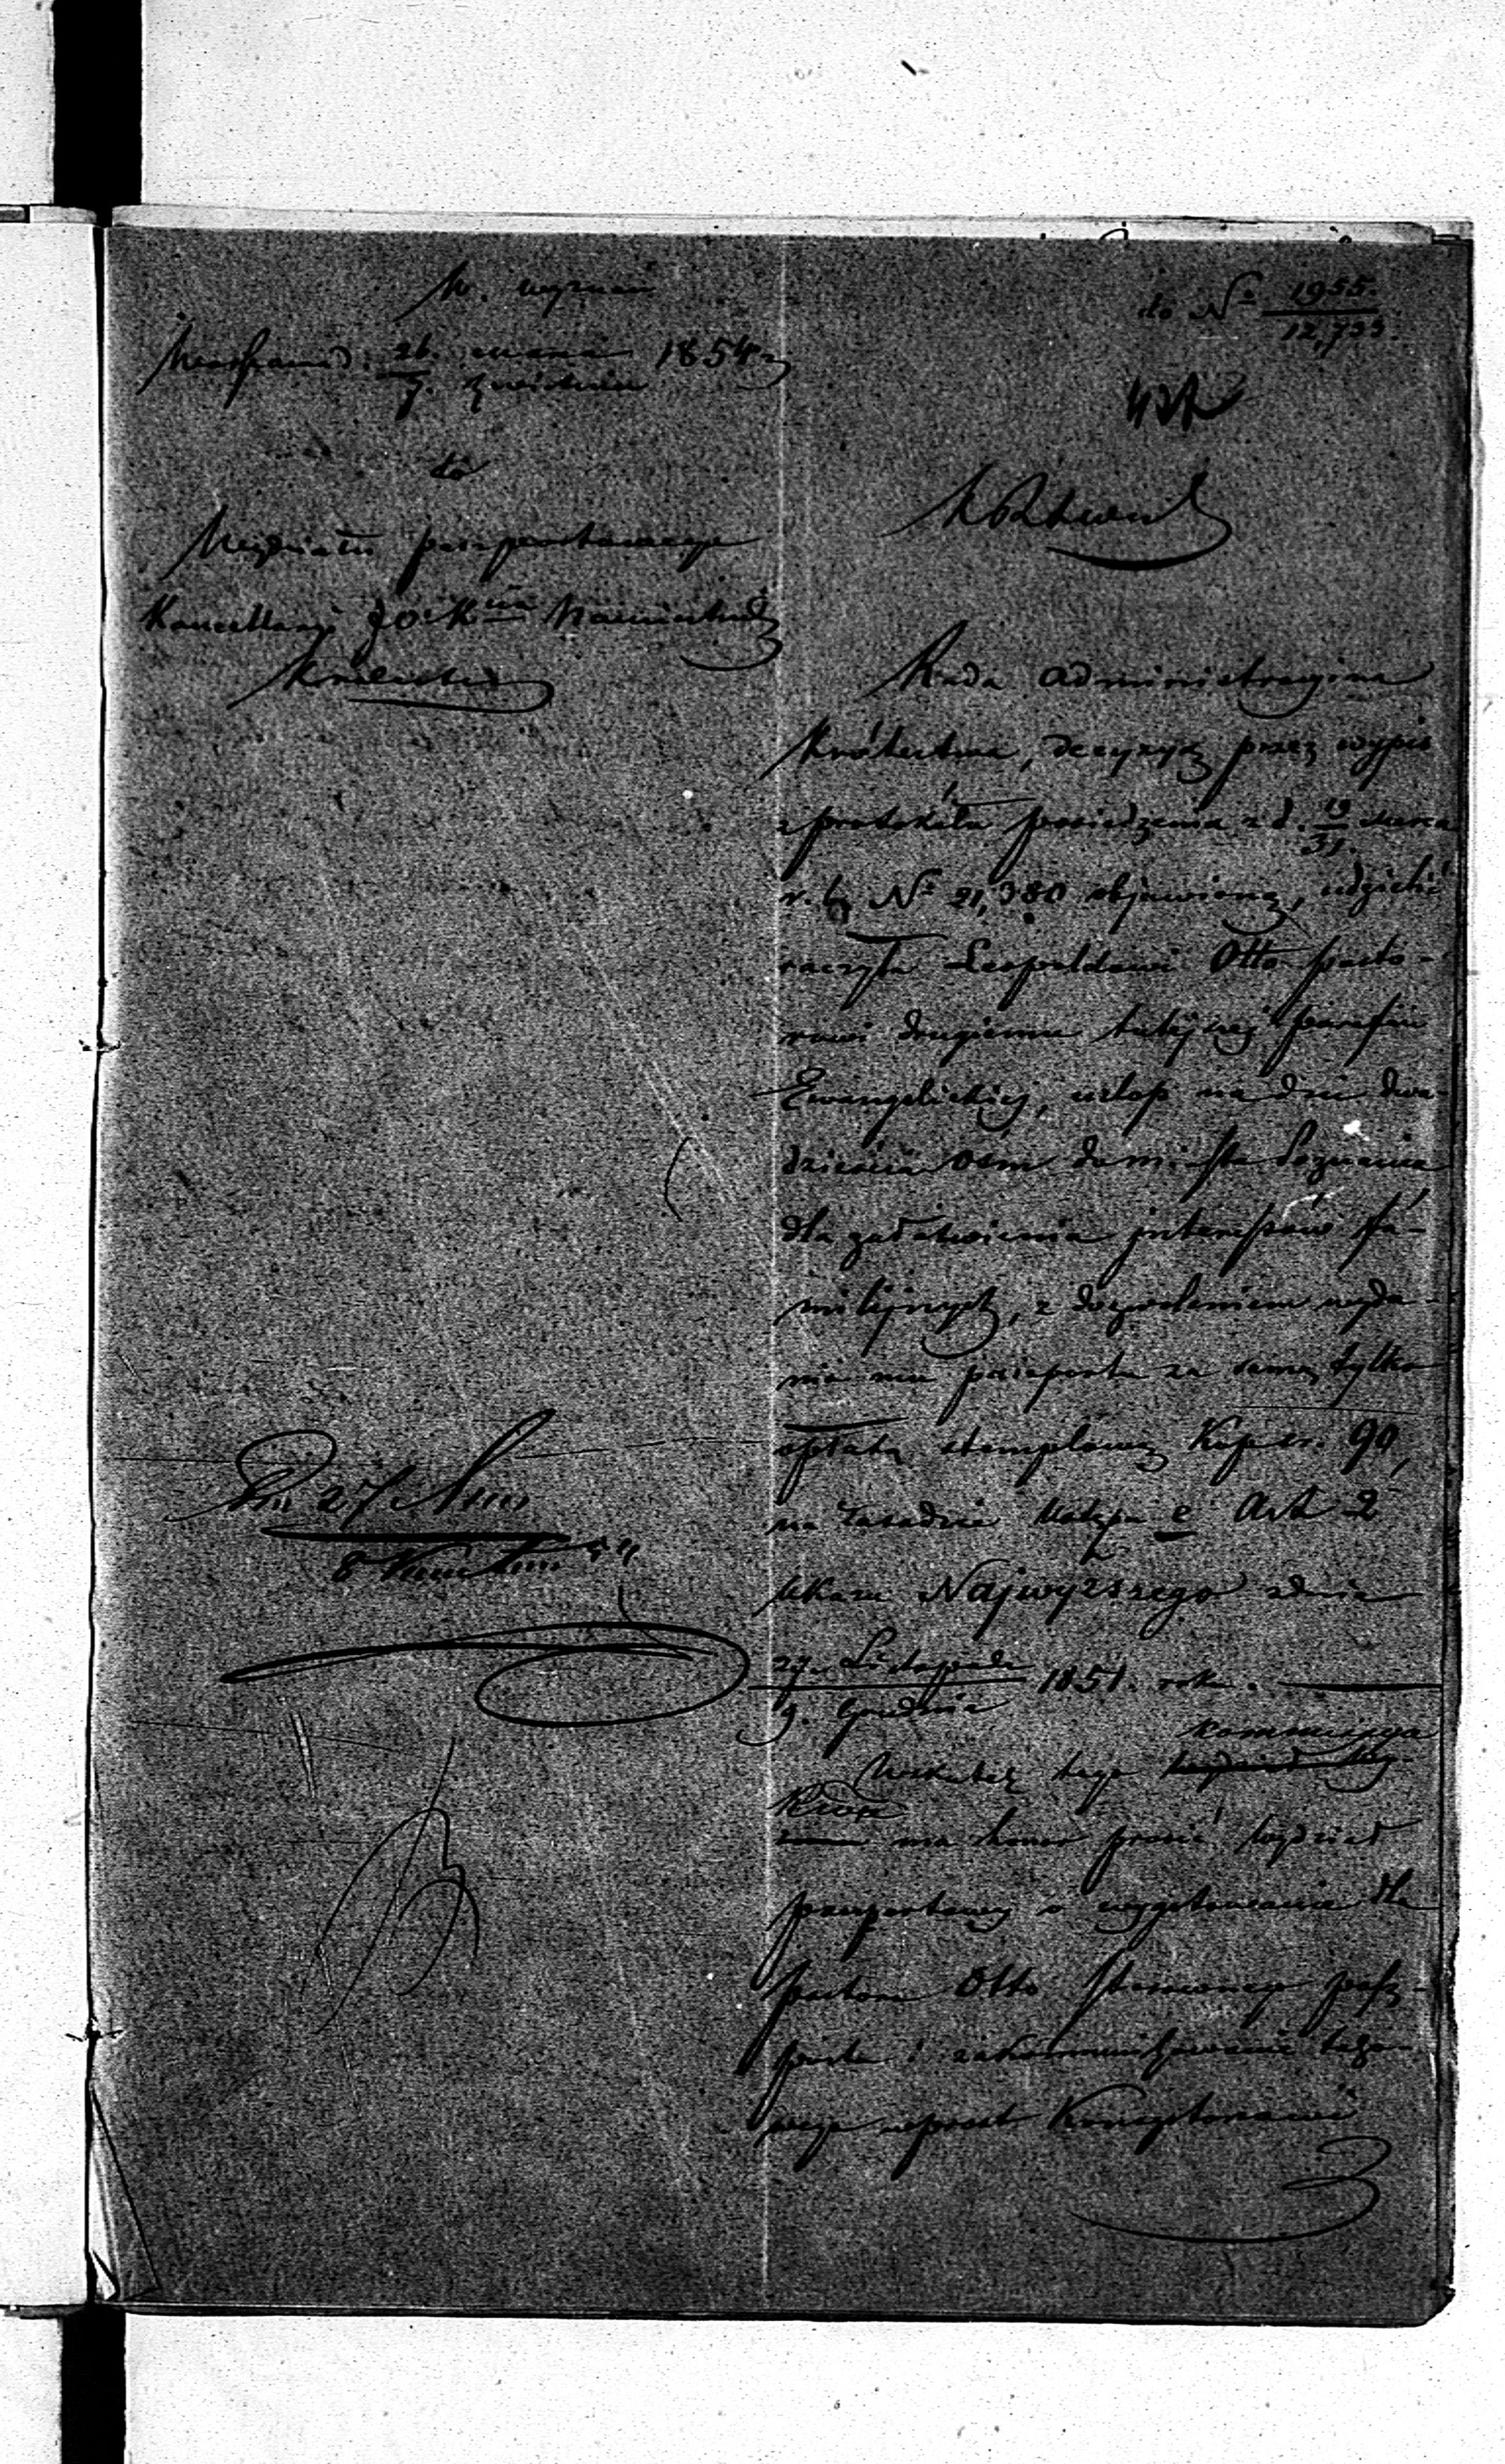 W. wyznań
Warszawa d. 26. marca / 7. kwietnia 1854 r.
do
Wydziału paszportowego
Kancellaryi JO. Kcia Namiestnika
Królestwa
do N° 1955 / 12,733.
Rada Administracyjna
Królestwa, decyzyą przez wypis
z protokółu posiedzenia z d. 19/31. marca
r. b. N° 21,380 objawioną, udzielić
raczyła Leopoldowi Otto pasto-
rowi drugiemu tutejszej parafii
Ewangelickiej, urlop na dni dwa-
dzieścia ośm do miasta Poznania
dla załatwienia interessów fa-
milijnych, z dozwoleniem wyda-
nia mu paszportu za samą tylko
opłatą stemplową Kop sr. 90,
na zasadzie Ustępu e Art 2
Ukazu Najwyższego z dnia
27. Listopada / 9. Grudnia 1851. roku.
Wskutek tego Kommissya
Rząd. ma honor prosić Wydział
paszportowy o wygotowanie dla
pastora Otto stosownego pasz-
portu i zakommunikowanie tako-
wego wprost